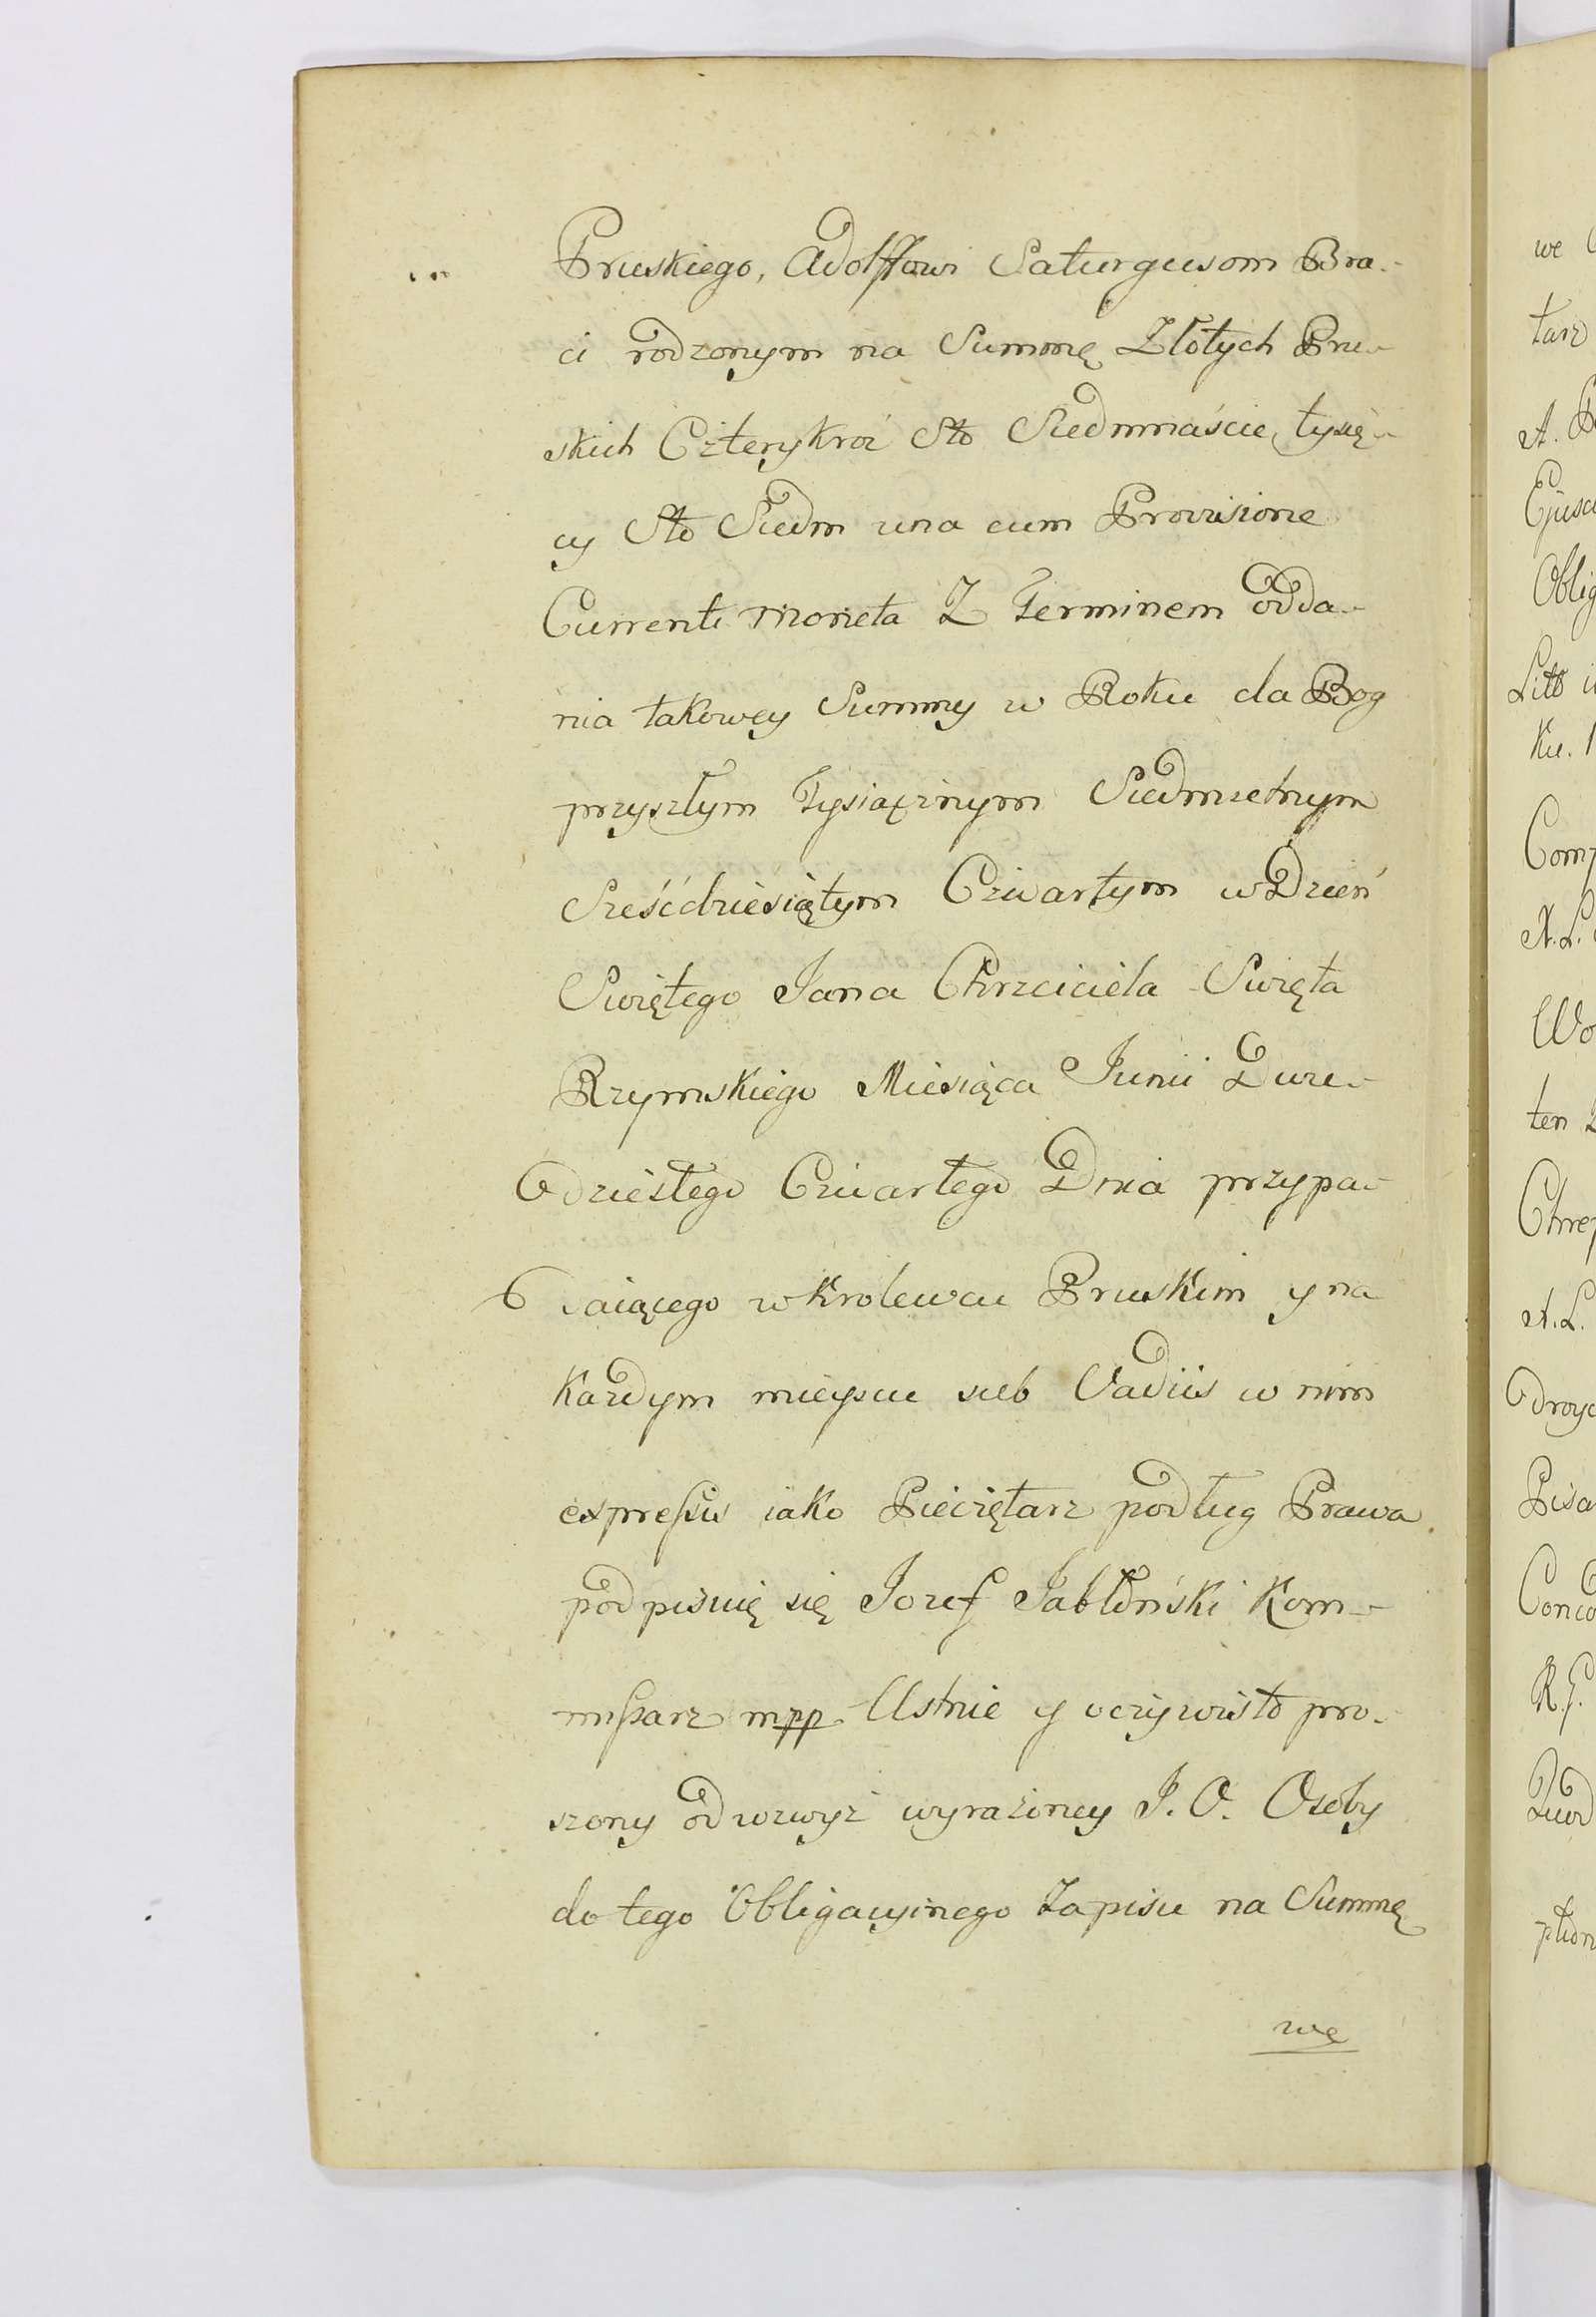 Pruskiego, Adolffowi Saturgusom Bra-
ci rodzonym na Summę Złotych Pru-
skich Czterykroć Sto Siedmnaście tysię-
cy Sto Siedm una cum Provisione
Currenti moneta Z Terminem odda-
nia takowey Summy w Roku da Bog
przyszłym Tysiącznym Siedmsetnym
Sześćdziesiątym Czwartym w Dzień
Swiętego Jana Chrzciciela Swięta
Rzymskiego Miesiąca Junii Dwu-
dziestego Czwartego Dnia przypa-
daiącego w Krolewcu Pruskim y na
Każdym mieyscu sub Vadiis w nim
expressis iako Pieczętarz podług Prawa
podpisuię się Jozef Jabłoński Kom-
missarz mpp Ustnie y oczywisto pro-
szony od wzwyż wyrażoney J. O. Osoby
do tego Obligacyinego Zapisu na Summę
wę
we
tarz
A.
Ejusd
Oblig
Litt
Ku. 1
Comp
N. L.
Wo
ten
Chrep
A. L.
droyc
Pisa
Conco